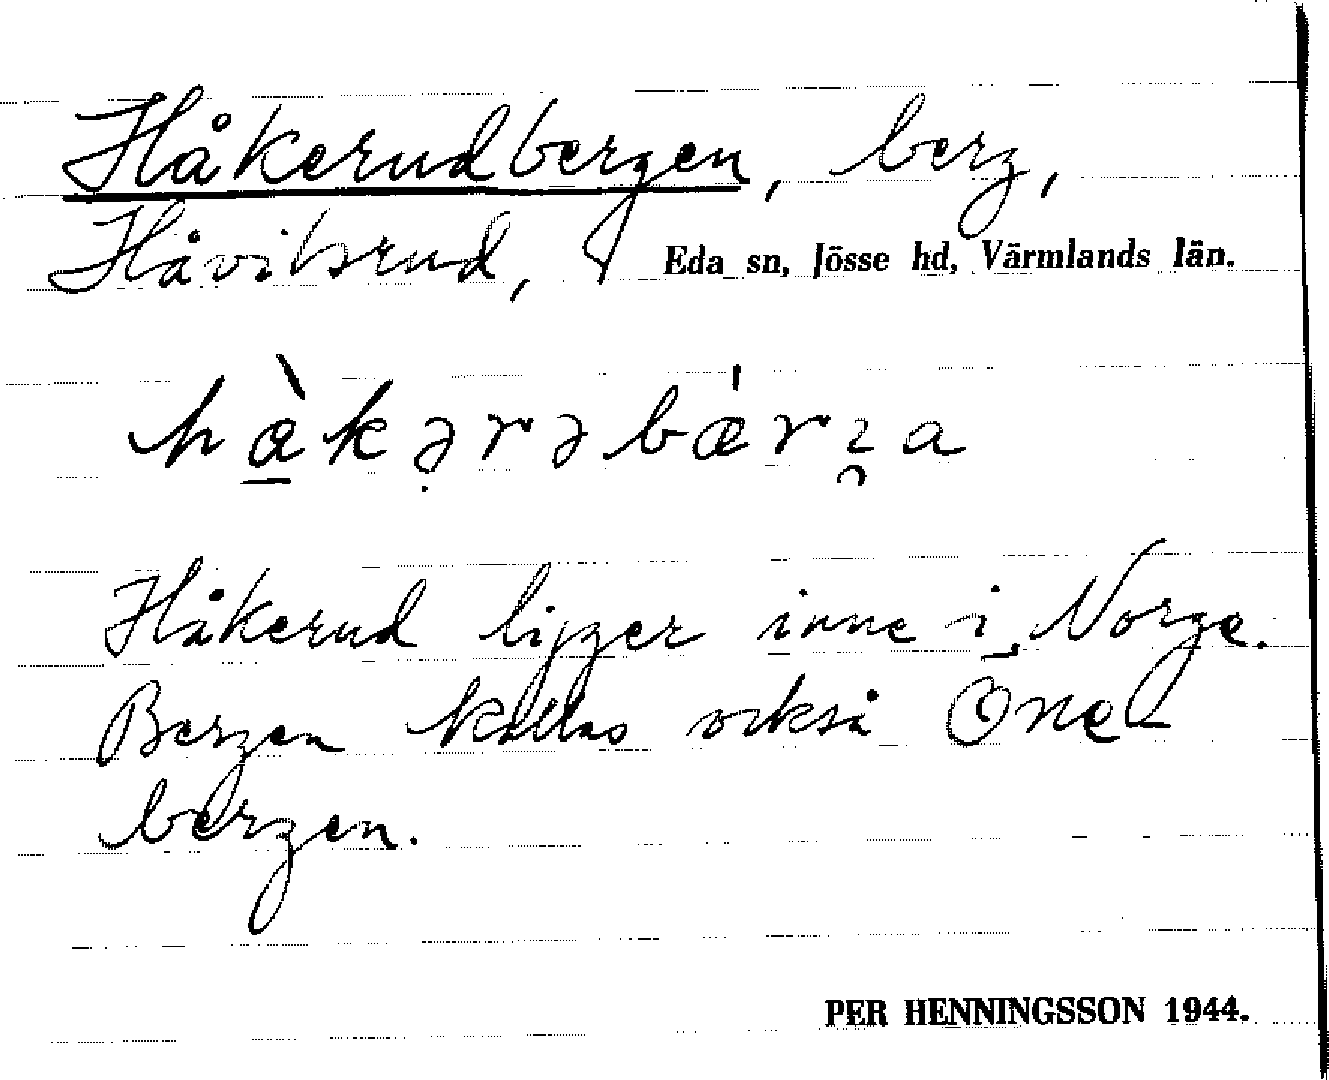 Håkerudbergen, berg,
Håvilsrud, Eda sn, Jösse hd, Värmlands län.
Håkerud ligger inne i Norge.
Bergen kallas också One
bergen.
PER HENNINGSSON 1944.